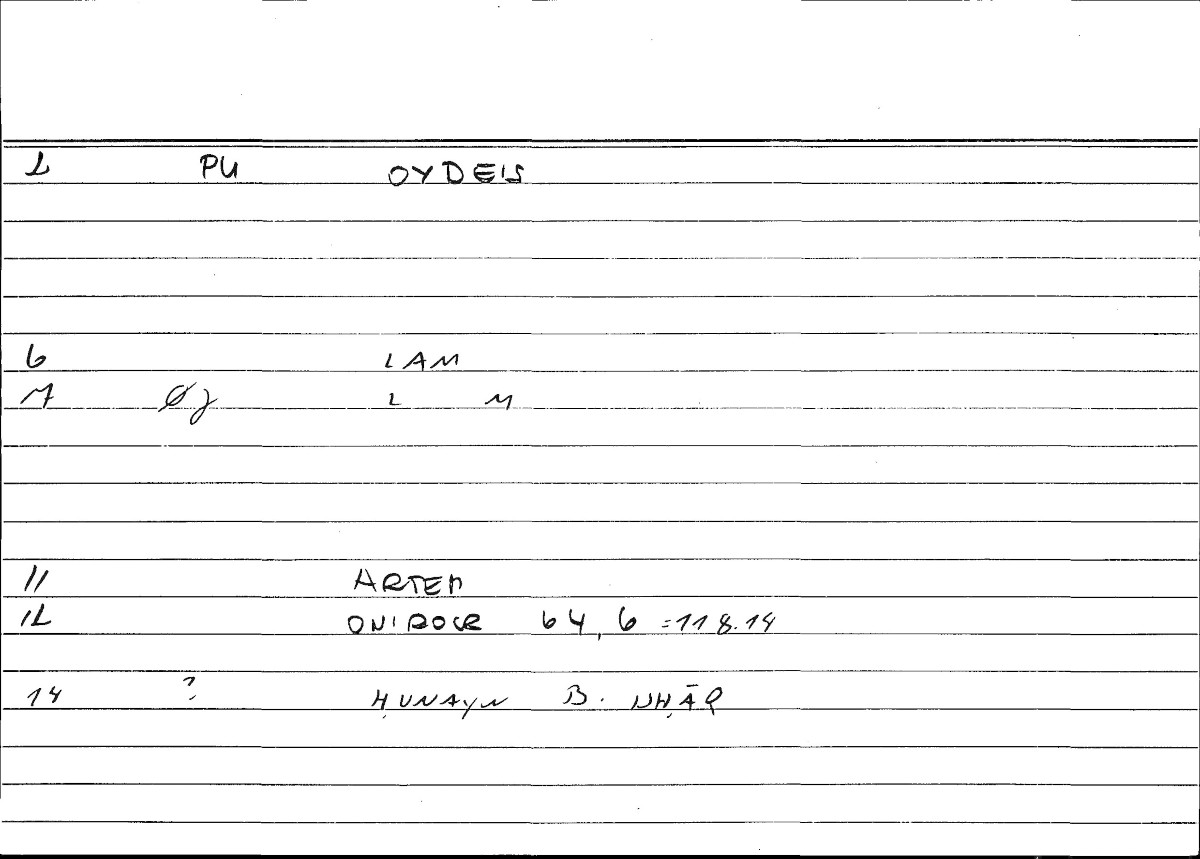 2 PU OYDEIS
6 LAM
7 Ø L M
11 ARTEM
12 ONIROCR 64,6 =118.14
14 ? ḤUNAYN B. ISḤĀQ